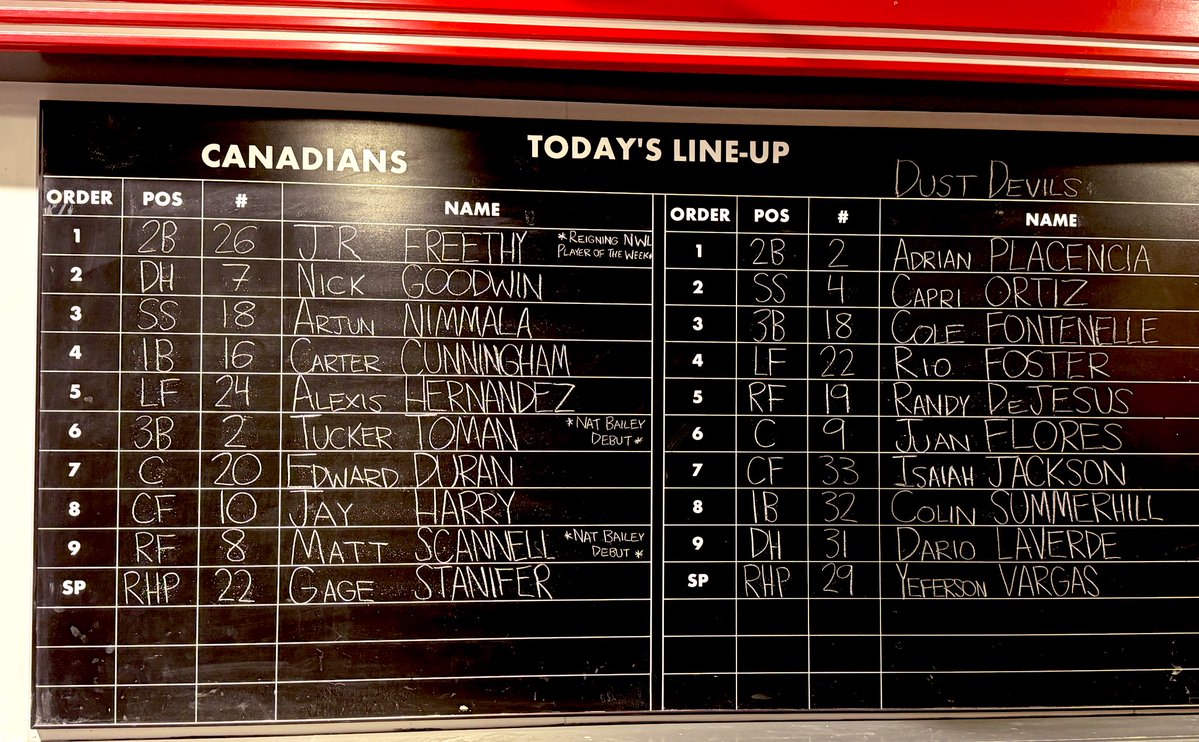 TODAY'S LINE-UP
CANADIANS
ORDER POS # NAME
1 2B 26 JR FREETHY *REIGNING NWL
PLAYER OF THE WEEK*
2 DH 7 NICK GOODWIN
3 SS 18 ARJUN NIMMALA
4 1B 16 CARTER CUNNINGHAM
5 LF 24 ALEXIS HERNANDEZ
6 3B 2 TUCKER TOMAN *NAT BAILEY
DEBUT*
7 C 20 EDWARD DURAN
8 CF 10 JAY HARRY
9 RF 8 MATT SCANNELL *NAT BAILEY
DEBUT*
SP RHP 22 GAGE STANIFER
DUST DEVILS
ORDER POS # NAME
1 2B 2 ADRIAN PLACENCIA
2 SS 4 CAPRI ORTIZ
3 3B 18 COLE FONTENELLE
4 LF 22 RIO FOSTER
5 RF 19 RANDY DEJESUS
6 C 9 JUAN FLORES
7 CF 33 ISAIAH JACKSON
8 1B 32 COLIN SUMMERHILL
9 DH 31 DARIO LAVERDE
SP RHP 29 YEFERSON VARGAS